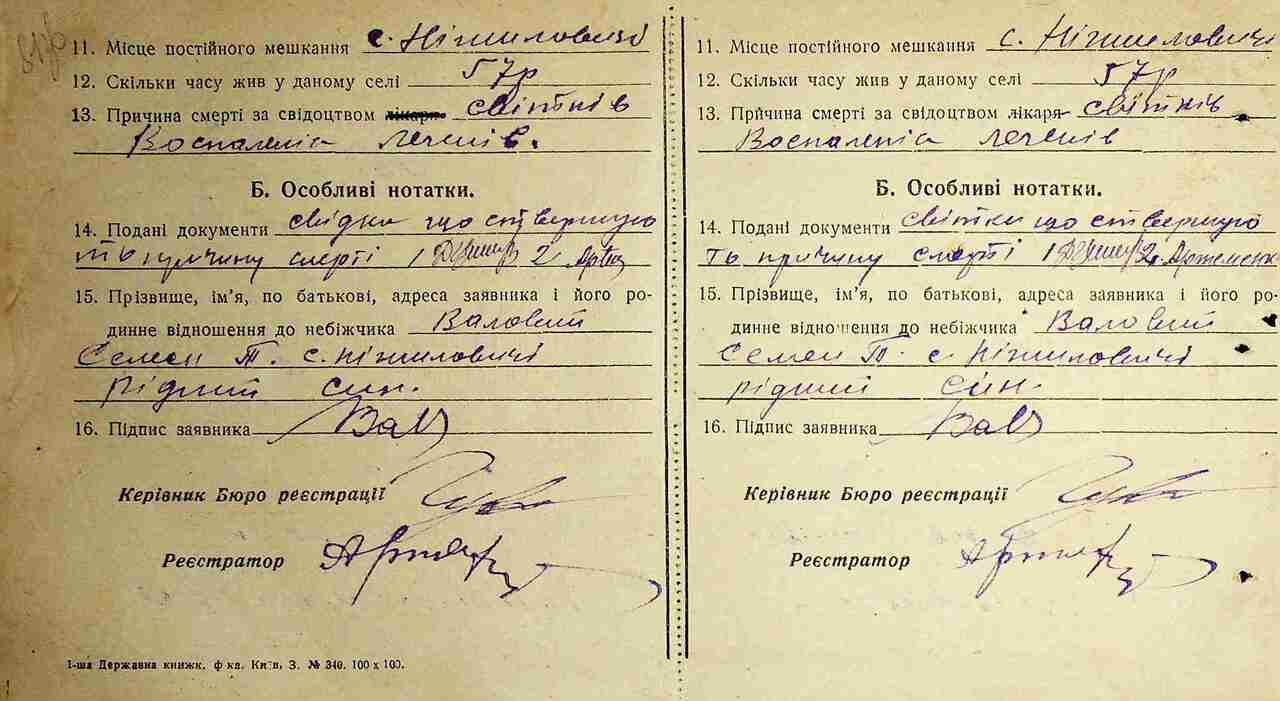 11. Місце постійного мешкання с. Ніжиловичі
12. Скільки часу жив у даному селі 57р
13. Причина смерті за свідоцтвом лікаря світків
Воспаленіа легенів.
Б. Особливі нотатки.
14. Подані документи свідки що ствержую
ть причину смерті 1 2
15. Прізвище, ім’я, по батькові, адреса заявника і його ро-
динне відношення до небіжчика Валовий
Семен Т. с. Ніжиловичі
рідний син.
16. Підпис заявника Вал
Керівник Бюро реєстрації
Реєстратор
1-ша Державна книжк. ф-ка. Київ, З. № 340. 100 x 100.
11. Місце постійного мешкання с. Ніжиловичі
12. Скільки часу жив у даному селі 57р
13. Причина смерті за свідоцтвом лікаря світків
Воспаленіа легенів
Б. Особливі нотатки.
14. Подані документи світки що ствержую
ть причину смерті 1 2.
15. Прізвище, ім’я, по батькові, адреса заявника і його ро-
динне відношення до небіжчика Валовий
Семен Т. с. Ніжиловичі
рідний син.
16. Підпис заявника Вал
Керівник Бюро реєстрації
Реєстратор